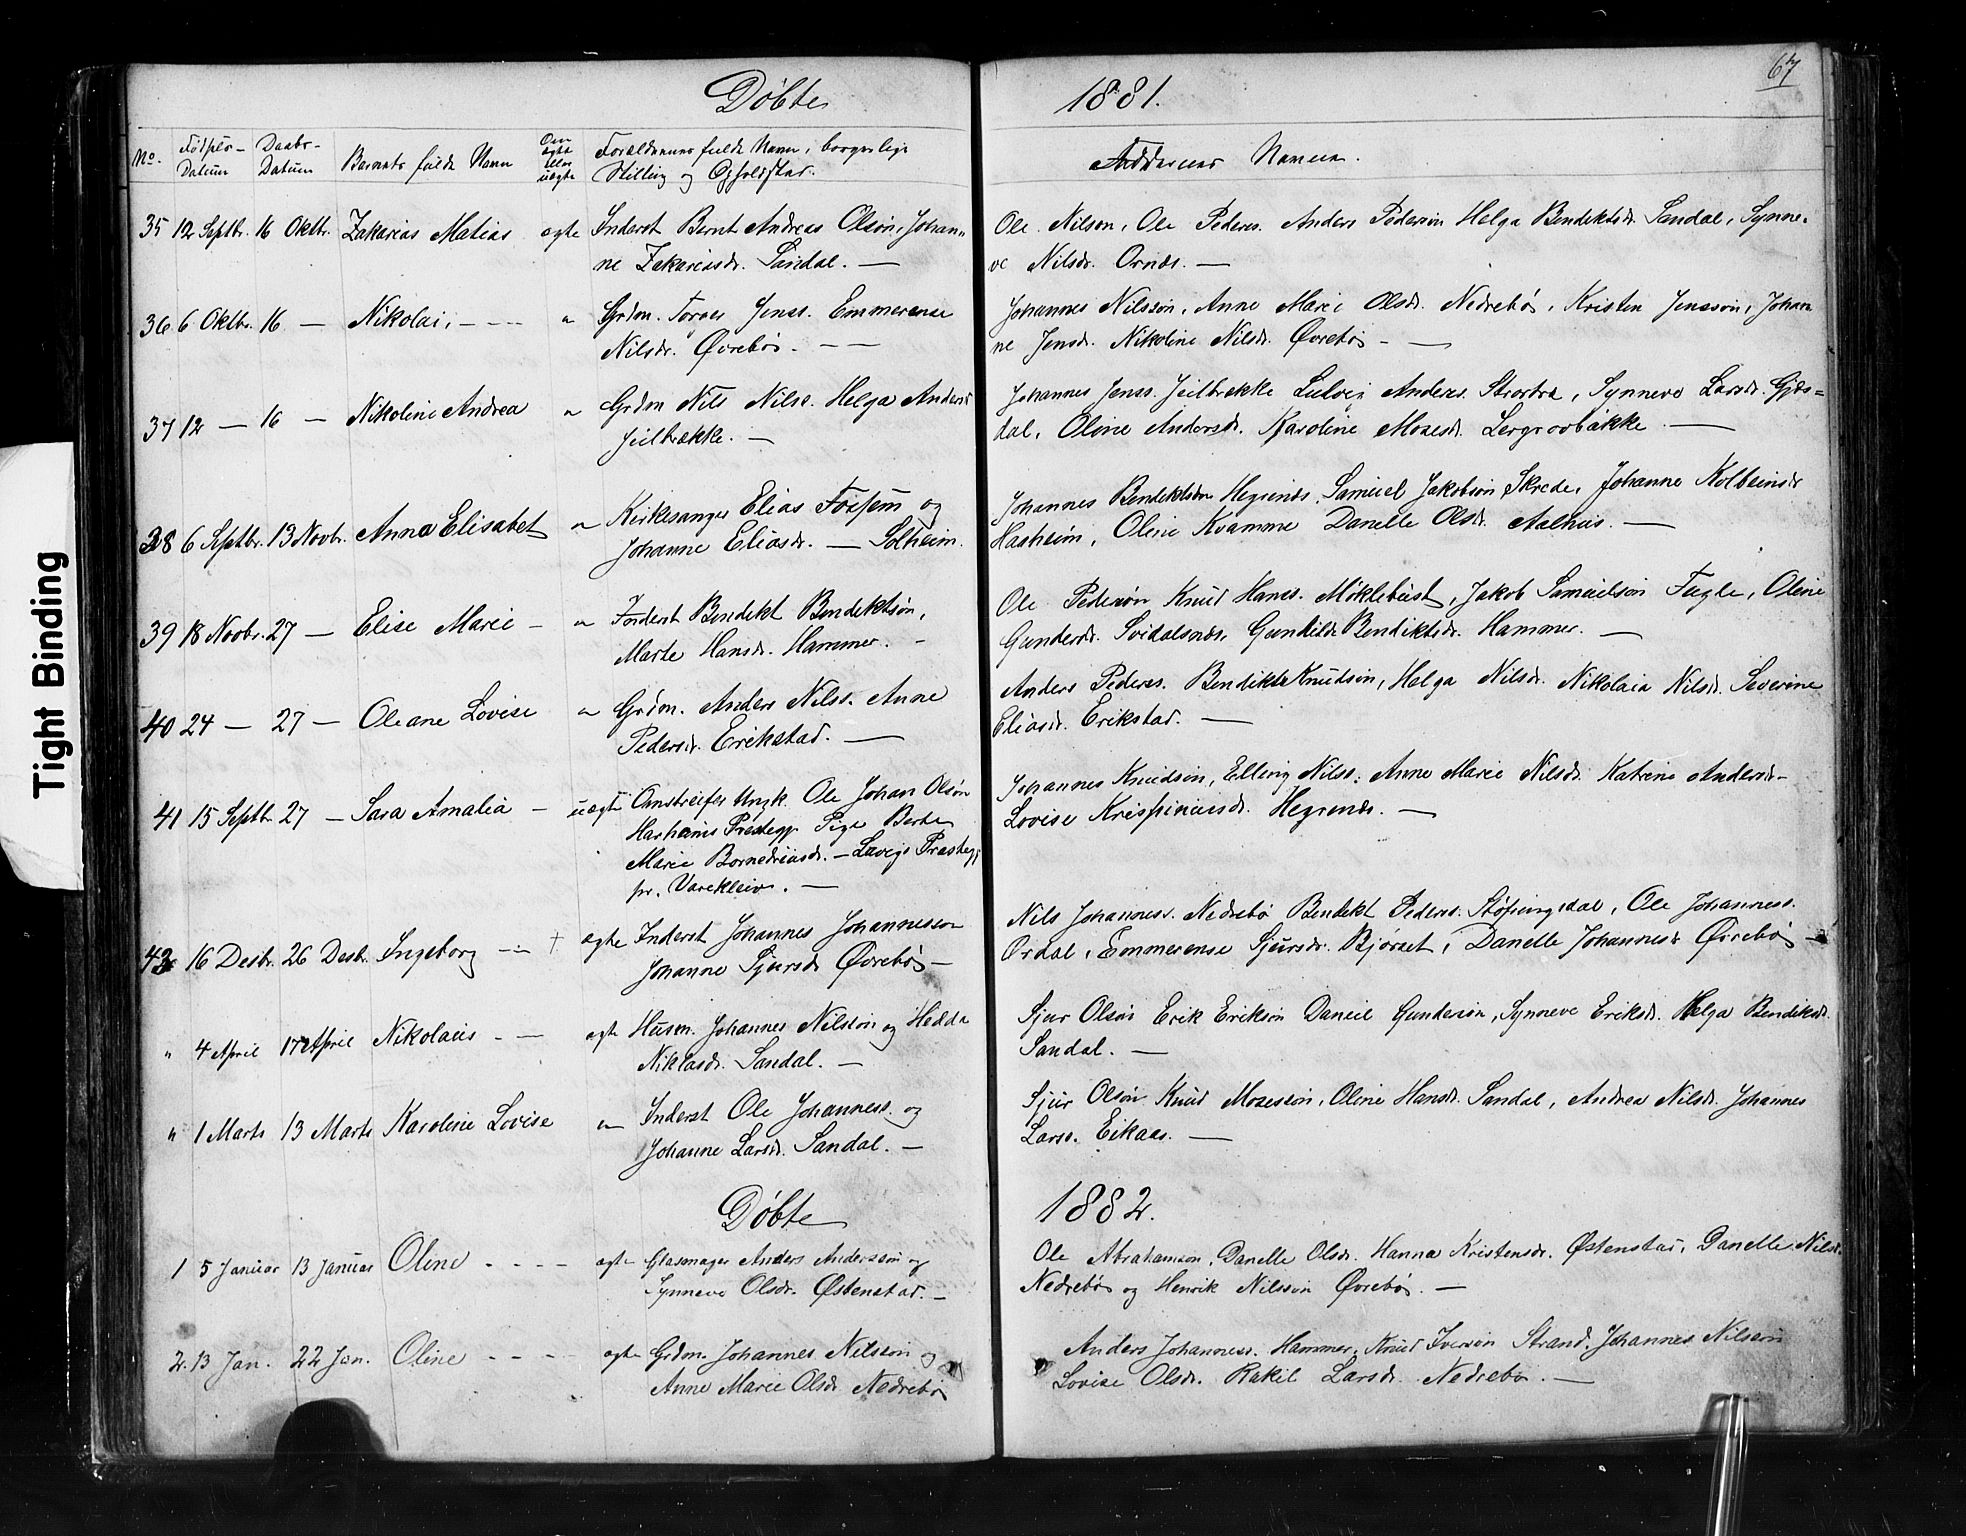 67
Døbte 1881.
No. Fødsels-Datum Daabs-Datum Barnets fulde Navn Om ægte eller uægte Forældrenes fulde Navn, borgerlige Stilling og Opholdsted. Faddernes Navne.
35 12 Septbr. 16 Oktbr. Zakarias Matias ægte Inderst Bernt Andreas Olsøn, Johan-
ne Zakariasdr. Sandal. —
Ole Nilsøn, Ole Peders. Anders Pedersøn Helga Bendiktsdr. Sandal, Synne-
ve Nilsdr. Ornæs. —
36 6 Oktbr. 16 — Nikolai, - - - " Grdm. Torger Jenss. Emmerense
Nilsdr. Øvrebø. — —
Johannes Nilssøn, Anne Marie Olsdr. Nedrebø, Kristen Jenssøn, Johan
ne Jensdr. Nikoline Nilsdr. Øvrebø - —
37 12 — 16 — Nikoline Andrea " Grdm Nils Nilss. Helga Andersd
Jeilbrække. —
Johannes Jenss. Jeilbrække Ludvig Anders. Strorbra, Synneve Larsdr. Gjes-
dal, Oline Andersdr. Karoline Mosesdr. Lergrovbakke —
38 6 Septbr. 13 Novbr. Anna Elisabet " Kirkesanger Elias Forsem og
Johanne Eliasdr. — Solheim.
Johannes Bendiktsøn Hegrenæs, Samuel Jakobsøn Skrede, Johanne Kolbeinsdr
Hasheim, Oline Kvamme Danelle Olsdr. Aalhus. —
39 18 Novbr. 27 — Elise Marie - " Forderst Bendikt Bendiktsøn,
Marte Hansdr. Hammer. -
Ole Pedersøn Knud Hanss. Møklebust, Jakob Samuelsøn Fugle, Oline
Gundersdr. Svidalsnæs, Gunhilde Bendiktsdr. Hammer. —
40 24 — 27 — Oleane Lovise " Grdm. Anders Nilss. Anne
Pedersdr. Erikstad. —
Anders Peders. Bendikt Knudsøn, Helga Nilsdr. Nikolaia Nilsd. Severine
Eliasdr. Erikstad. —
41 15 Septbr. 27 — Sara Amalia - uægte Omstreifer Ungk. Ole Johan Olsøn
Harhams Prestegj. Pige Berte
Marie Bornedriusdr. — Lavigs Prestegj.
pr. Vareklein. —
Johannes Knudsøn, Elling Nilss. Anne Marie Nilsdr. Katrine Andersdr-
Lovise Krispinusdr. Hegrenæs. —
42 16 Desbr. 26 Desbr. Ingeborg — + ægte Inderst Johannes Johannessøn
Johanne Sjursdr Øvrebø —
Nils Johanness. Nedrebø Bendikt Peders. Støfringsdal, Ole Johanness.
Ordal, Emmerense Sjursdr. Bjørset, Danelle Johannesdr Øvrebø —
" 4 April 17 April Nikolaus - — ægte Husm. Johannes Nilssøn og Hedda
Niklasdr. Sandal. —
Sjur Olsøn Erik Eriksøn Daniel Gundersøn, Synneve Eriksd. Helga Bendiksdr.
Sandal. —
" 1 Marts 13 Marts Karoline Lovise " Inderst Ole Johanness. og
Johanne Larsdr. Sandal. —
Sjur Olsøn Knud Mosessøn, Oline Hansdr. Sandal, Andrea Nilsdr. Johannes
Larss. Eikaas. —
Døbte 1882.
1 5 Januar 13 Januar Oline - - - - ægte Glasmager Anders Anderssøn og
Synneve Olsdr. Østenstad. —
Ole Abrahamsøn, Danelle Olsdr. Hanna Kristensdr. Østenstad, Danelle Nilsd.
Nedrebø og Henrik Nilssøn Øvrebø. —
2. 13 Jan. 22 Jan. Oline - - - - ægte Grdm. Johannes Nilssøn og
Anne Marie Olsdr Nedrebø
Anders Johanness. Hammer, Knud Iversøn Strand, Johannes Nilssøn
Lovise Olsdr. Rakel Larsdr. Nedrebø. —
Tight Binding